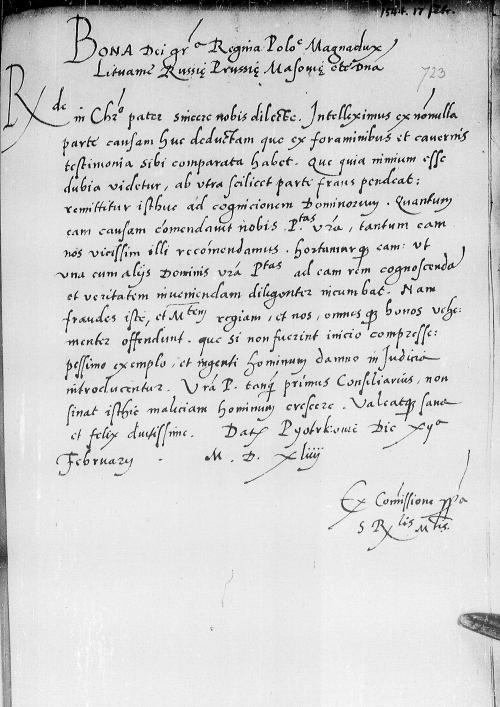 1544. 17 febr.
723
BONA Dei gr̃a Regina Polo.e Magnadux
Lituanię Russię Prussię Masovię etc Dña
Rx de in Chrõ pater sincere nobis dilecte. Intelleximus ex nõnulla
parte causam huc deductam que ex foraminibus et cavernis
testimonia sibi comparata habet. Que quia nimium esse
dubia videtur, ab utra scilicet parte fraus pendeat:
remittitur isthuc ad cognicionem Dominorum. Quantum
eam causam comendavit nobis P.tas vrã, tantum eam
nos vicissim illi recõmendamus. hortamurqȝ eam: ut
una cum alijs Dominis vrã Ptas ad eam rem cognoscendã
et veritatem inveniendam diligenter incumbat. Nam
fraudes iste, et Mtem regiam, et nos, omnesqȝ bonos vehe-
menter offendunt. que si non fuerint inicio compresse:
pessimo exemplo, et ingenti hominum damno in Judicia
introducentur. Vrã P. tanqȝ primus Consiliarius, non
sinat isthic maliciam hominum crescere. Valeatqȝ sane
et felix diutissime. Datx Pyotrkovie Die xvᵃ
February . M. D. xliiij
Ex Comissione ppã
S Rxlis Mtis.